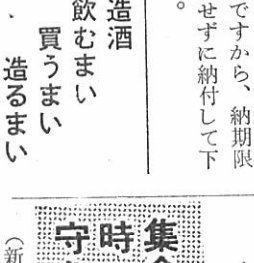 ですから、納期限
せずに納付して下
。
造酒
飲むまい
買うまい
造るまい
集
時
守
（新